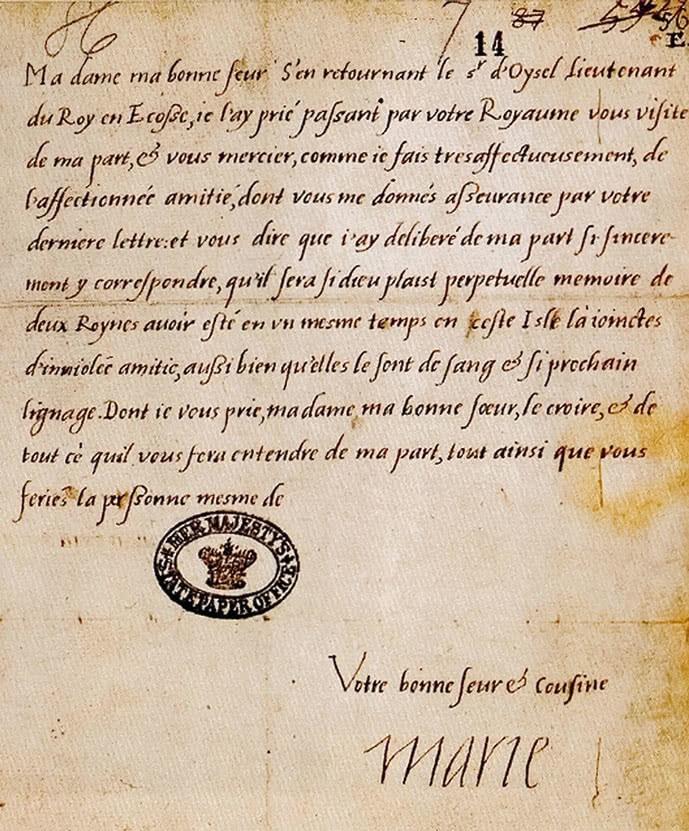 14
87
56
E
Ma dame ma bonne seur S'en retournant le sr d'Oysel Lieutenant
du Roy en Ecosse, ie l'ay prié passant par votre Royaume vous visite
de ma part, & vous mercier, comme ie fais tresaffectueusement, de
l'affectionneé amitié, dont vous me donnés asseurance par votre
derniere lettre: et vous dire que i'ay deliberé de ma part si sincere-
ment y correspondre, qu'il sera si dieu plaist perpetuelle memoire de
deux Roynes auoir esté en vn mesme temps en ceste Isle là ioinctes
d'inuiolée amitie, aussi bien qu'elles le sont de sang & si prochain
lignage. Dont ie vous prie, madame, ma bonne sœur, le croire, & de
tout cè quil vous fera entendre de ma part, tout ainsi que vous
feries la personne mesme de
HER MAJESTY'S STATE PAPER OFFICE
Votre bonne seur & cousine
Marie